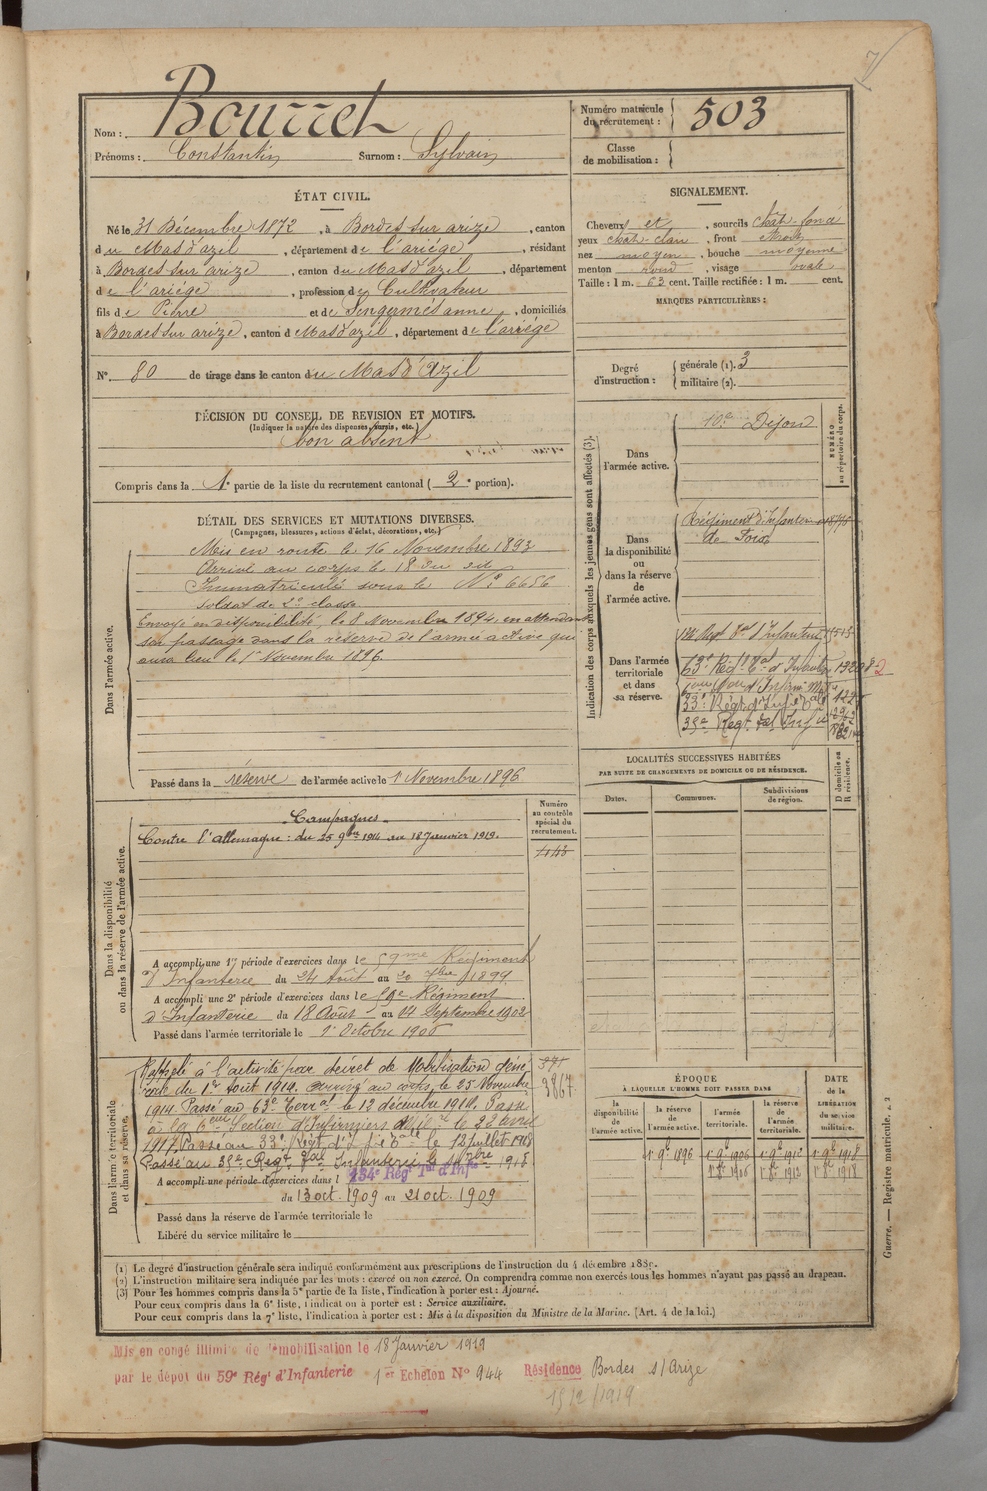 7
Nom : Bourret
Prénoms : Constantin Surnom : Sylvain
Numéro matricule du recrutement : 503
Classe de mobilisation :
ÉTAT CIVIL.
Né le 31 Décembre 1872, à Bordes sur arize, canton
du Mas d'azil, département de l'ariége, résidant
à Bordes sur arize, canton du Mas d'azil, département
de l'ariége, profession de Cultivateur
fils de Pierre et de Sengermés anne, domiciliés
à Bordes sur arize, canton d Mas d'azil, département de l'ariége
N° 80 de tirage dans le canton du Mas d'Azil
SIGNALEMENT.
Cheveux et, sourcils chât. foncé
yeux chât. clair, front étroit
nez moyen, bouche moyenne
menton rond, visage ovale
Taille : 1 m. 63 cent. Taille rectifiée : 1 m. cent.
MARQUES PARTICULIÈRES :
Degré d'instruction : générale (1). 3
militaire (2).
DÉCISION DU CONSEIL DE REVISION ET MOTIFS.
(Indiquer la nature des dispenses, sursis, etc.)
bon absent
Compris dans la 1e partie de la liste du recrutement cantonal ( 2e portion).
DÉTAIL DES SERVICES ET MUTATIONS DIVERSES.
(Campagnes, blessures, actions d'éclat, décorations, etc.)
Dans l'armée active.
Mis en route le 16 Novembre 1893
Arrivé au corps le 18 du dit
Immatriculé sous le N° 6656
soldat de 2e classe.
Envoyé en disponibilité, le 8 Novembre 1894, en attendant
son passage dans la réserve de l'armée active qui
aura lieu le 1r Novembre 1896.
Passé dans la réserve de l'armée active le 1r Novembre 1896
Indication des corps auxquels les jeunes gens sont affectés (3).
NUMÉRO au répertoire du corps.
Dans l'armée active.
10e Dijon
Dans la disponibilité ou dans la réserve de l'armée active.
Régiment d'Infanterie
de Foix
Dans l'armée territoriale et dans sa réserve.
Regt Tal d'Infanterie
63e Régt Tal d'Infanterie 13208 2
33e Régt d'Infie Tale
38e Regt Tal Infie
LOCALITÉS SUCCESSIVES HABITÉES
PAR SUITE DE CHANGEMENTS DE DOMICILE OU DE RÉSIDENCE.
Dates. Communes. Subdivisions de région. D domicile ou R résidence.
Dans la disponibilité ou dans la réserve de l'armée active.
Numéro au contrôle spécial du recrutement.
Campagnes
Contre l'allemagne : du 25 9bre 1914 au 18 Janvier 1919.
448
A accompli une 1re période d'exercices dans le 59me Régiment
d'Infanterie du 24 Août au 20 7bre 1899
A accompli une 2e période d'exercices dans le 59e Régiment
d'Infanterie du 18 Août au 14 Septembre 1902
Passé dans l'armée territoriale le 1r Octobre 1906
Dans l'armée territoriale et dans sa réserve.
Rappelé à l'activité par décret de Mobilisation géné
rale du 1er Août 1914. Arrivé au corps le 25 Novembre
1914. Passé au 63e Terral le 12 décembre 1914. Passé
à la 6eme Section d'Infirmiers Milres le 23 avril
1917. Passé au 33e Régt d'Infie Tale le 12 juillet 1918
Passé au 38e Regt Tal Infanterie le 1918
3867
A accompli une période d'exercices dans l 134e Rég Tal d'Infie
du 13 oct. 1909 au 21 oct. 1909
Passé dans la réserve de l'armée territoriale le
Libéré du service militaire le
ÉPOQUE
À LAQUELLE L'HOMME DOIT PASSER DANS
DATE de la LIBÉRATION du service militaire.
la disponibilité de l'armée active. la réserve de l'armée active. l'armée territoriale. la réserve de l'armée territoriale.
1r 9e 1896 1r 9e 1906 1r 9e 1912 1r 9e 1918
1r 8e 1906 1r 8e 1912 1r 8e 1918
Guerre. — Registre matricule. 2
(1) Le degré d'instruction générale sera indiqué conformément aux prescriptions de l'instruction du 4 décembre 1889.
(2) L'instruction militaire sera indiquée par les mots : exercé ou non exercé. On comprendra comme non exercés tous les hommes n'ayant pas passé au drapeau.
(3) Pour les hommes compris dans la 5e partie de la liste, l'indication à porter est : Ajourné.
Pour ceux compris dans la 6e liste, l'indication à porter est : Service auxiliaire.
Pour ceux compris dans la 7e liste, l'indication à porter est : Mis à la disposition du Ministre de la Marine. (Art. 4 de la loi.)
Mis en congé illimité de démobilisation le 18 Janvier 1919
par le dépot du 59e Rég t d'Infanterie 1er Echelon N° 944 Résidence Bordes s/Arize
15/2/1919